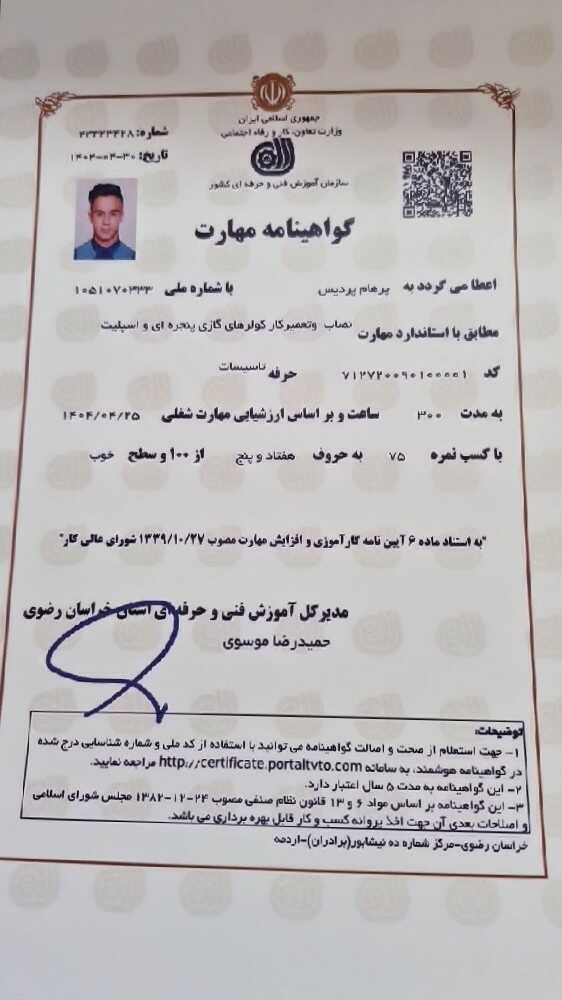 جمهوری اسلامی ایران
وزارت تعاون، کار و رفاه اجتماعی
سازمان آموزش فنی و حرفه ای کشور
شماره: ۴۳۲۲۳۴۲۸
تاریخ: ۱۴۰۴-۰۴-۳۰
گواهینامه مهارت
اعطا می گردد به پرهام پردیس با شماره ملی ۱۰۵۱۰۷۰۳۳۳
مطابق با استاندارد مهارت نصاب وتعمیرکار کولرهای گازی پنجره ای و اسپلیت
کد ۷۱۲۷۲۰۰۹۰۱۰۰۰۰۱ حرفه تاسیسات
به مدت ۳۰۰ ساعت و بر اساس ارزشیابی مهارت شغلی ۱۴۰۴/۰۴/۲۵
با کسب نمره ۷۵ به حروف هفتاد و پنج از ۱۰۰ و سطح خوب
"به استناد ماده ۶ آیین نامه کارآموزی و افزایش مهارت مصوب ۱۳۳۹/۱۰/۲۷ شورای عالی کار"
مدیرکل آموزش فنی و حرفه ای استان خراسان رضوی
حمیدرضا موسوی
توضیحات:
۱- جهت استعلام از صحت و اصالت گواهینامه می توانید با استفاده از کد ملی و شماره شناسایی درج شده
در گواهینامه هوشمند، به سامانه http://certificate.portaltvto.com مراجعه نمایید.
۲- این گواهینامه به مدت ۵ سال اعتبار دارد.
۳- این گواهینامه بر اساس مواد ۶ و ۱۳ قانون نظام صنفی مصوب ۲۴-۱۲-۱۳۸۲ مجلس شورای اسلامی
و اصلاحات بعدی آن جهت اخذ پروانه کسب و کار قابل بهره برداری می باشد.
خراسان رضوی-مرکز شماره ده نیشابور(برادران)-اردمه